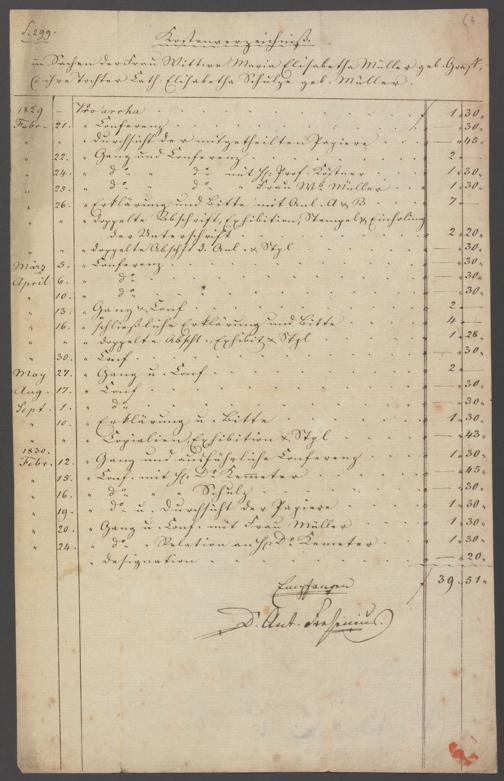 S. 299.
Kostenverzeichniß
in Sachen der Frau Wittwe Maria Elisabetha Müller geb. Graff,
ihre Tochter Cath. Elisabetha Schulze geb. Müller.
1829 – Pro arrha f 1 „ 30 „
Febr. 21. „ Conferenz „ – „ 30 „
„ „ „ Durchsicht der mitgetheilten Papiere „ – „ 45 „
„ 22. „ Gang und Conferenz „ 2 „ –
„ 24. „ do „ do „ mit H. Prof. Köstner „ 1 „ 30 „
„ 25. „ do „ do „ Frau We Müller „ 1 „ 30 „
„ 26. „ Erklärung und Bitte mit Anl. A & B „ 7 „ –
„ „ „ doppelte Abschrift, Exhibition, Stempel & Einholung
der Unterschrift „ 2 „ 20 „
„ „ „ doppelte Abschft d. Anl. & Stpl „ – „ 30 „
März 5. „ Conferenz „ – „ 30 „
April 6. „ do „ – „ 30 „
„ 10. „ do „ – „ 30 „
„ 13. „ Gang & Conf „ 2 „ –
„ 16. „ schließliche Erklärung und Bitte „ 4 „ –
„ „ „ doppelte Abscht. Exhibit & Stpl „ 1 „ 28 „
„ 30. „ Conf „ – „ 30 „
May 27. „ Gang u. Conf „ 2 „ –
Aug. 17. „ Conf „ – „ 30 „
Sept. 1. „ do „ – „ 30 „
„ 10. „ Erklärung u. Bitte „ 1 „ 30 „
„ „ „ Copialien, Exhibition & Stpl „ – „ 43 „
1830.
Febr. 12. „ Gang und ausführliche Conferenz „ 1 „ 30 „
„ 15. „ Conf. mit H. Dr Kemeter „ – „ 45 „
„ 16. „ do „ „ Schulz „ – „ 30 „
„ 19. „ do u. Durchsicht der Papiere „ 1 „ 30 „
„ 20. „ Gang u. Conf. mit Frau Müller „ 1 „ 30 „
„ 24. „ do „ Relation an H. Dr Kemeter „ 1 „ 30 „
„ Designation „ – „ 20 „
f 39 „ 51 „
Empfangen
D. Ant. Fresenius.